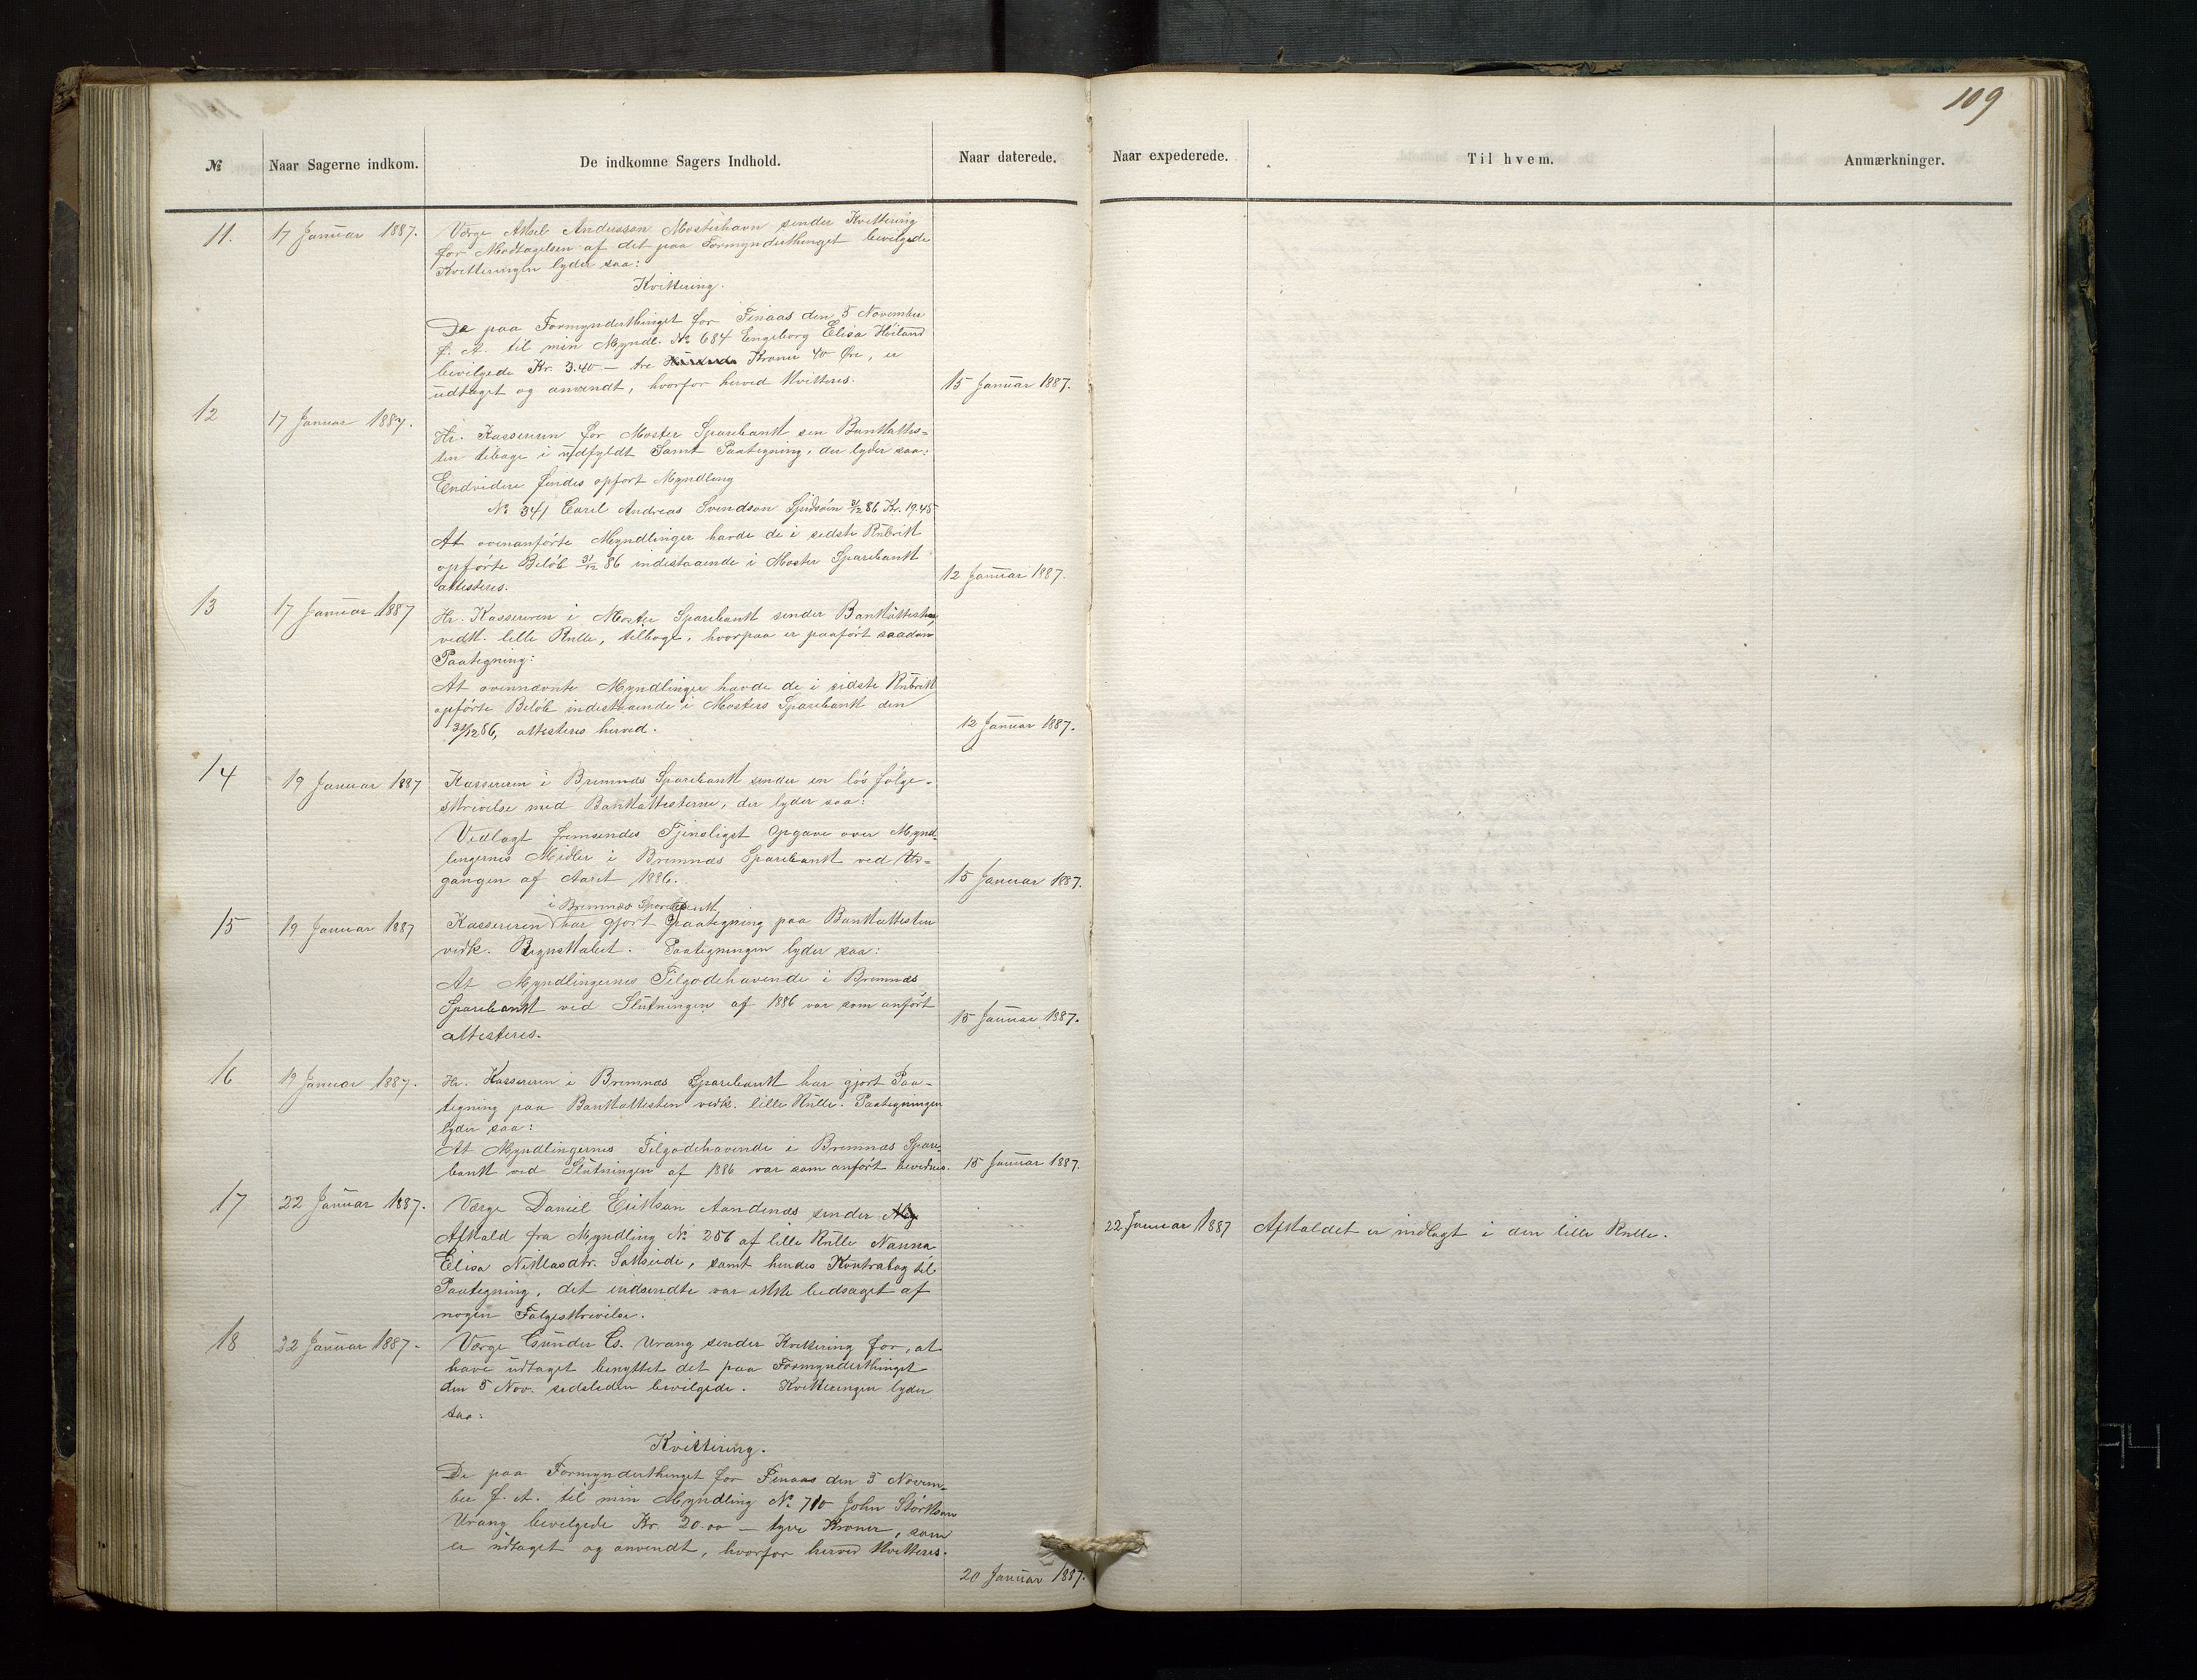 109
№ Naar Sagerne indkom. De indkomne Sagers Indhold. Naar daterede. Naar expederede. Til hvem. Anmærkninger.
11. 17 Januar 1887. Værge Aksel Andersson Mosterhavn sender Kvittering
for Modtagelsen af det paa Formynderthinget bevilgede
Kvitteringen lyder saa:
Kvittering.
De paa Formynderthinget for Finaas den 5 November
f. A. til min Myndl. № 684 Engeborg Elisa Høiland
bevilgede Kr. 3.40 – tre Kroner 40 Øre, er
udtaget og anvendt, hvorfor herved kvitteres. 15 Januar 1887.
12 17 Januar 1887. Hr. Kassereren for Moster Sparebank sen Bankattes-
ten tibage i udfyldt Samt Paategning, der lyder saa:
Endvidere findes opført Myndling
№ 341 Carel Andreas Svendson 31/12 86 Kr. 19.45
At ovenanførte Myndlinger havde de i sidste Rubrik
opførte Beløb 31/12 86 indestaaende i Moster Sparebank
attesteres. 12 Januar 1887.
13 17 Januar 1887 Hr. Kassereren i Moster Sparebank sender Bankattesten
vedk. lille Rulle, tilbage, hvorpaa er paaført saadan
Paategning:
At ovennævnte Myndlinger havde de i sidste Rubrik
opførte Beløb indestaaende i Mosters Sparebank den
31/12 86, attesteres herved. 12 Januar 1887.
14 19 Januar 1887 Kassereren i Bremnæs Sparebank sender en løs følge-
skrivelse med Bankattesterne, der lyder saa:
Vedlagt fremsendes Tjensligst Opgave over Mynd-
lingernes Midler i Bremnæs Sparebank ved Ud-
gangen af Aaret 1886. 15 Januar 1887.
i Bremnæs Sparebank
15 19 Januar 1887 Kassereren har gjort Paategning paa Bankattesten
vedk. Regnskabet. Paategningen lyder saa:
At Myndlingernes Tilgodehavende i Bremnæs
Sparebank ved Slutningen af 1886 var som anført
attesteres. 15 Januar 1887.
16 19 Januar 1887. Hr. Kassereren i Bremnæs Sparebank har gjort Paa-
tegning paa Bankattesten vedk. lille Rulle. Paategningen
lyder saa:
At Myndlingernes Tilgodehavende i Bremnæs Spare-
bank ved Slutningen af 1886 var som anført bevidnes. 15 Januar 1887.
17 22 Januar 1887. Værge Daniel Erikson Aandenæs sender
Afkald fra Myndling № 256 af lille Rulle Nanna
Elisa Niklasdtr. Sakseide, samt hendes Kontrabog til
Paategning, det indsendte var ikke ledsaget af
nogen Følgeskrivelse.
22 Januar 1887 Afkaldet er indlagt i den lille Rulle.
18 22 Januar 1887. Værge Gunder G. Urang sender Kvittering for, at
have udtaget benyttet det paa Formynderthinget
den 5 Nov. sidsleden bevilgede. Kvitteringen lyder
saa:
Kvittering.
De paa Formynderthinget for Finaas den 5 Novem-
ber f. A. til min Myndling № 710 John Størkson
Urang bevilgede Kr. 20.00 – tyve Kroner, som
er udtaget og anvendt, hvorfor herved kvitteres.
20 Januar 1887.